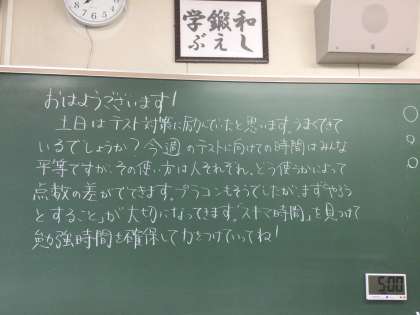 和し
鍛え
学ぶ
おはようございます!
土日はテスト対策に励んでいたと思います。うまくできて
いるでしょうか?今週のテストに向けての時間はみんな
平等ですが、その使い方は人それぞれ。どう使うかによって
点数の差がでてきます。プラコンもそうでしたが、まず「やろう
とすること」が大切になってきます。「スキマ時間」を見つけて
勉強時間を確保して力をつけていってね!
5:00